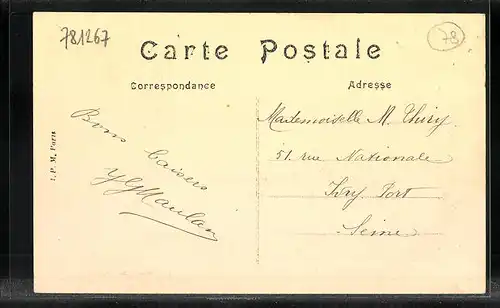 781267
78
Carte Postale
Correspondance
Adresse
Bons
baisers
Mademoiselle M. Thiry
51. rue Nationale
Ivry Port
Seine
I. P. M. Paris